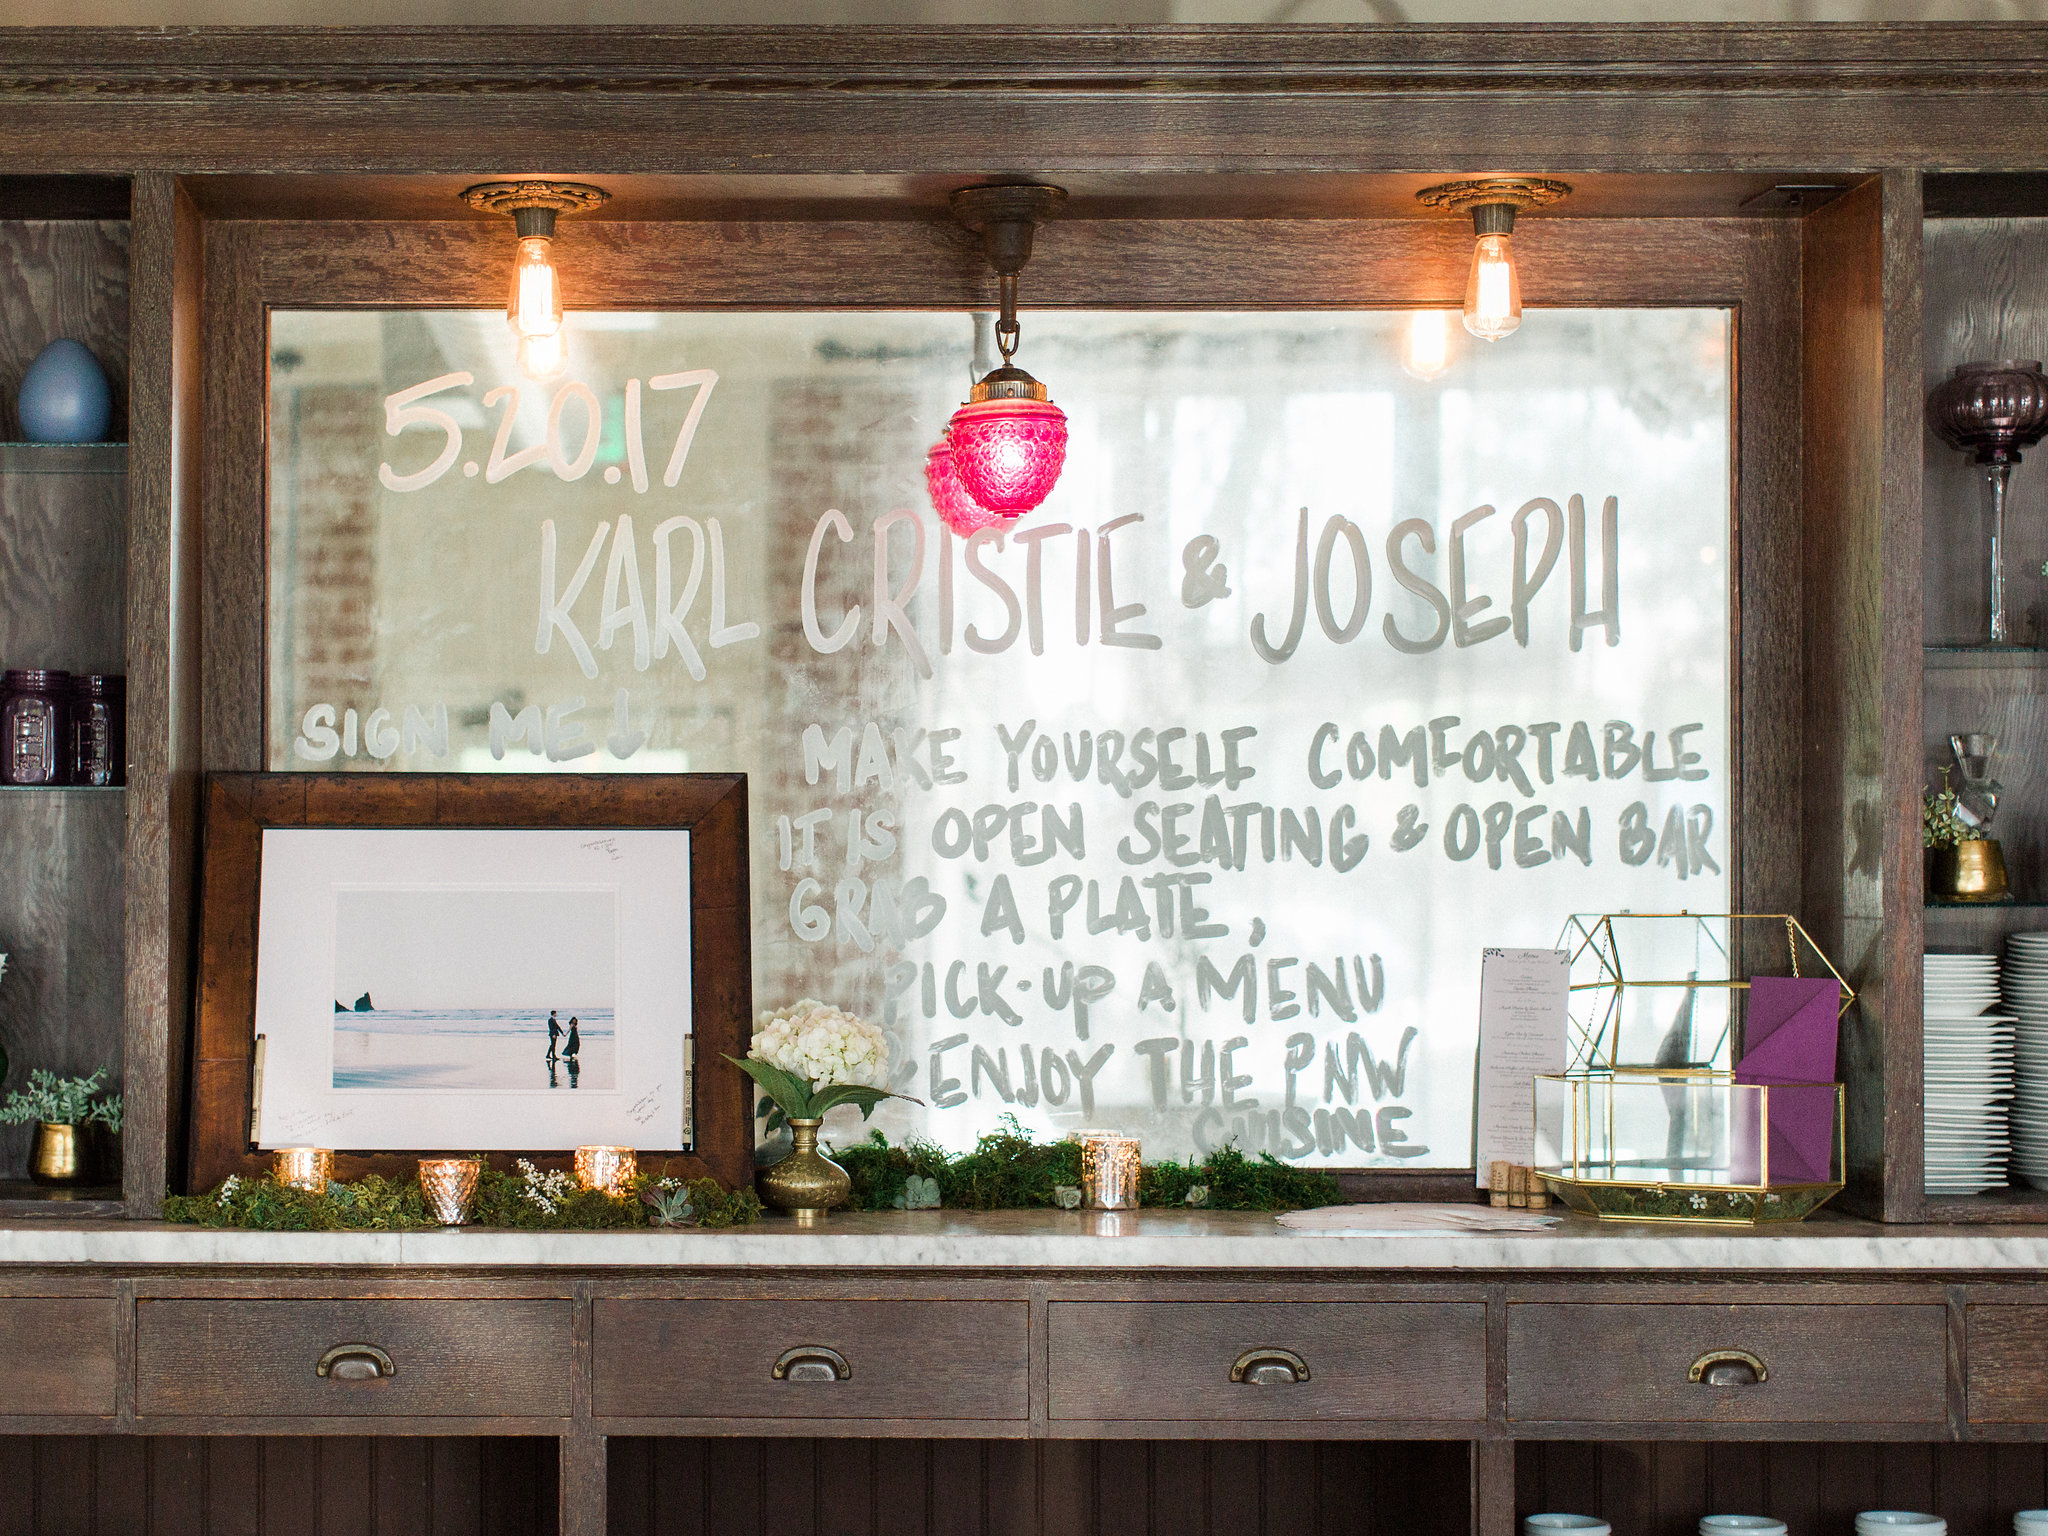 5.20.17
KARL CRISTIE & JOSEPH
SIGN ME ↓
MAKE YOURSELF COMFORTABLE
IT IS OPEN SEATING & OPEN BAR
GRAB A PLATE,
PICK-UP A MENU
& ENJOY THE PNW
CUISINE
Menu